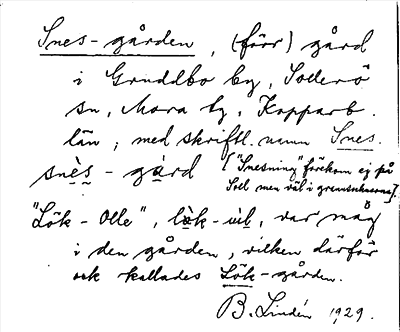 Snes-gården, (förr) gård
i Gruddbo by, Sollerö
sn, Mora tg, Kopparb.
län; med skriftl. namn Snes.
snès-gàrd ["Snesning" förekom ej på
Soll men väl i grannsocknarna].
"Lök-Olle", lö̀k-ùl, var måg
i den gården, vilken därför
ock kallades Lök-gården.
B. Lindén 1929.